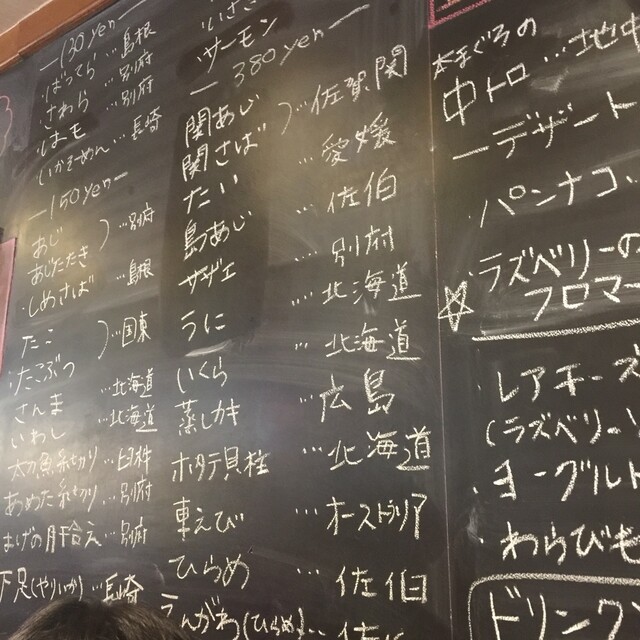 —130yen—
ばってら…島根
さわら…別府
はも…別府
いかそーめん…長崎
—150yen—
あじ
あじたたき )…別府
しめさば…島根
たこ )…国東
たこぶつ
さんま…北海道
いわし…北海道
太刀魚糸切り…臼杵
あめた糸切り…別府
はげの肝合え…別府
下足(やりいか)…長崎
サーモン
—380yen—
関あじ )…佐賀関
関さば
たい…愛媛
島あじ…佐伯
サザエ…別府
うに…北海道
いくら…北海道
蒸しカキ…広島
ホタテ貝柱…北海道
車えび…オーストラリア
ひらめ…佐伯
えんがわ(ひらめ)…佐
本まぐろの
中トロ…地中
—デザート
・パンナコッ
・ラズベリーの
フロマー
・レアチーズ
(ラズベリーソ
・ヨーグルト
・わらびも
ドリンク